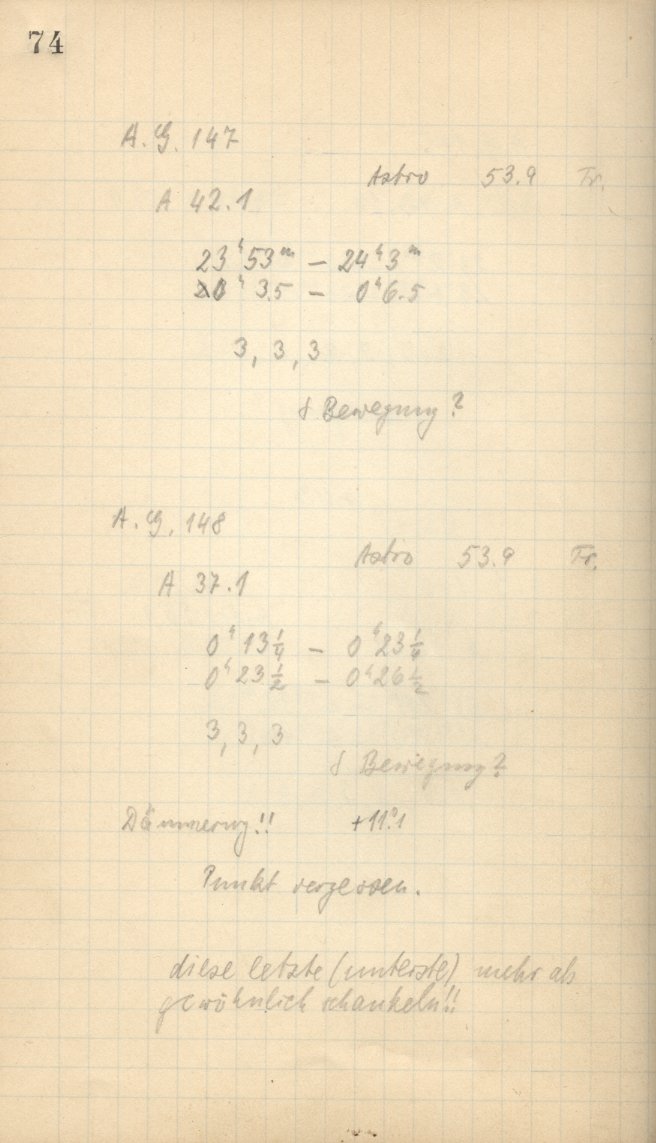 74
A. G. 147
Astro 53.9 Tr.
A 42.1
23ʰ53ᵐ – 24ʰ3ᵐ
0ʰ3.5 – 0ʰ6.5
3, 3, 3
δ Bewegung?
A. G. 148
Astro 53.9 Tr.
A 37.1
0ʰ13¼ – 0ʰ23¼
0ʰ23½ – 0ʰ26½
3, 3, 3
δ Bewegung?
Dämmerung!! +11°.1
Punkt vergessen.
diese letzte (unterste) mehr als
gewöhnlich schaukeln!!